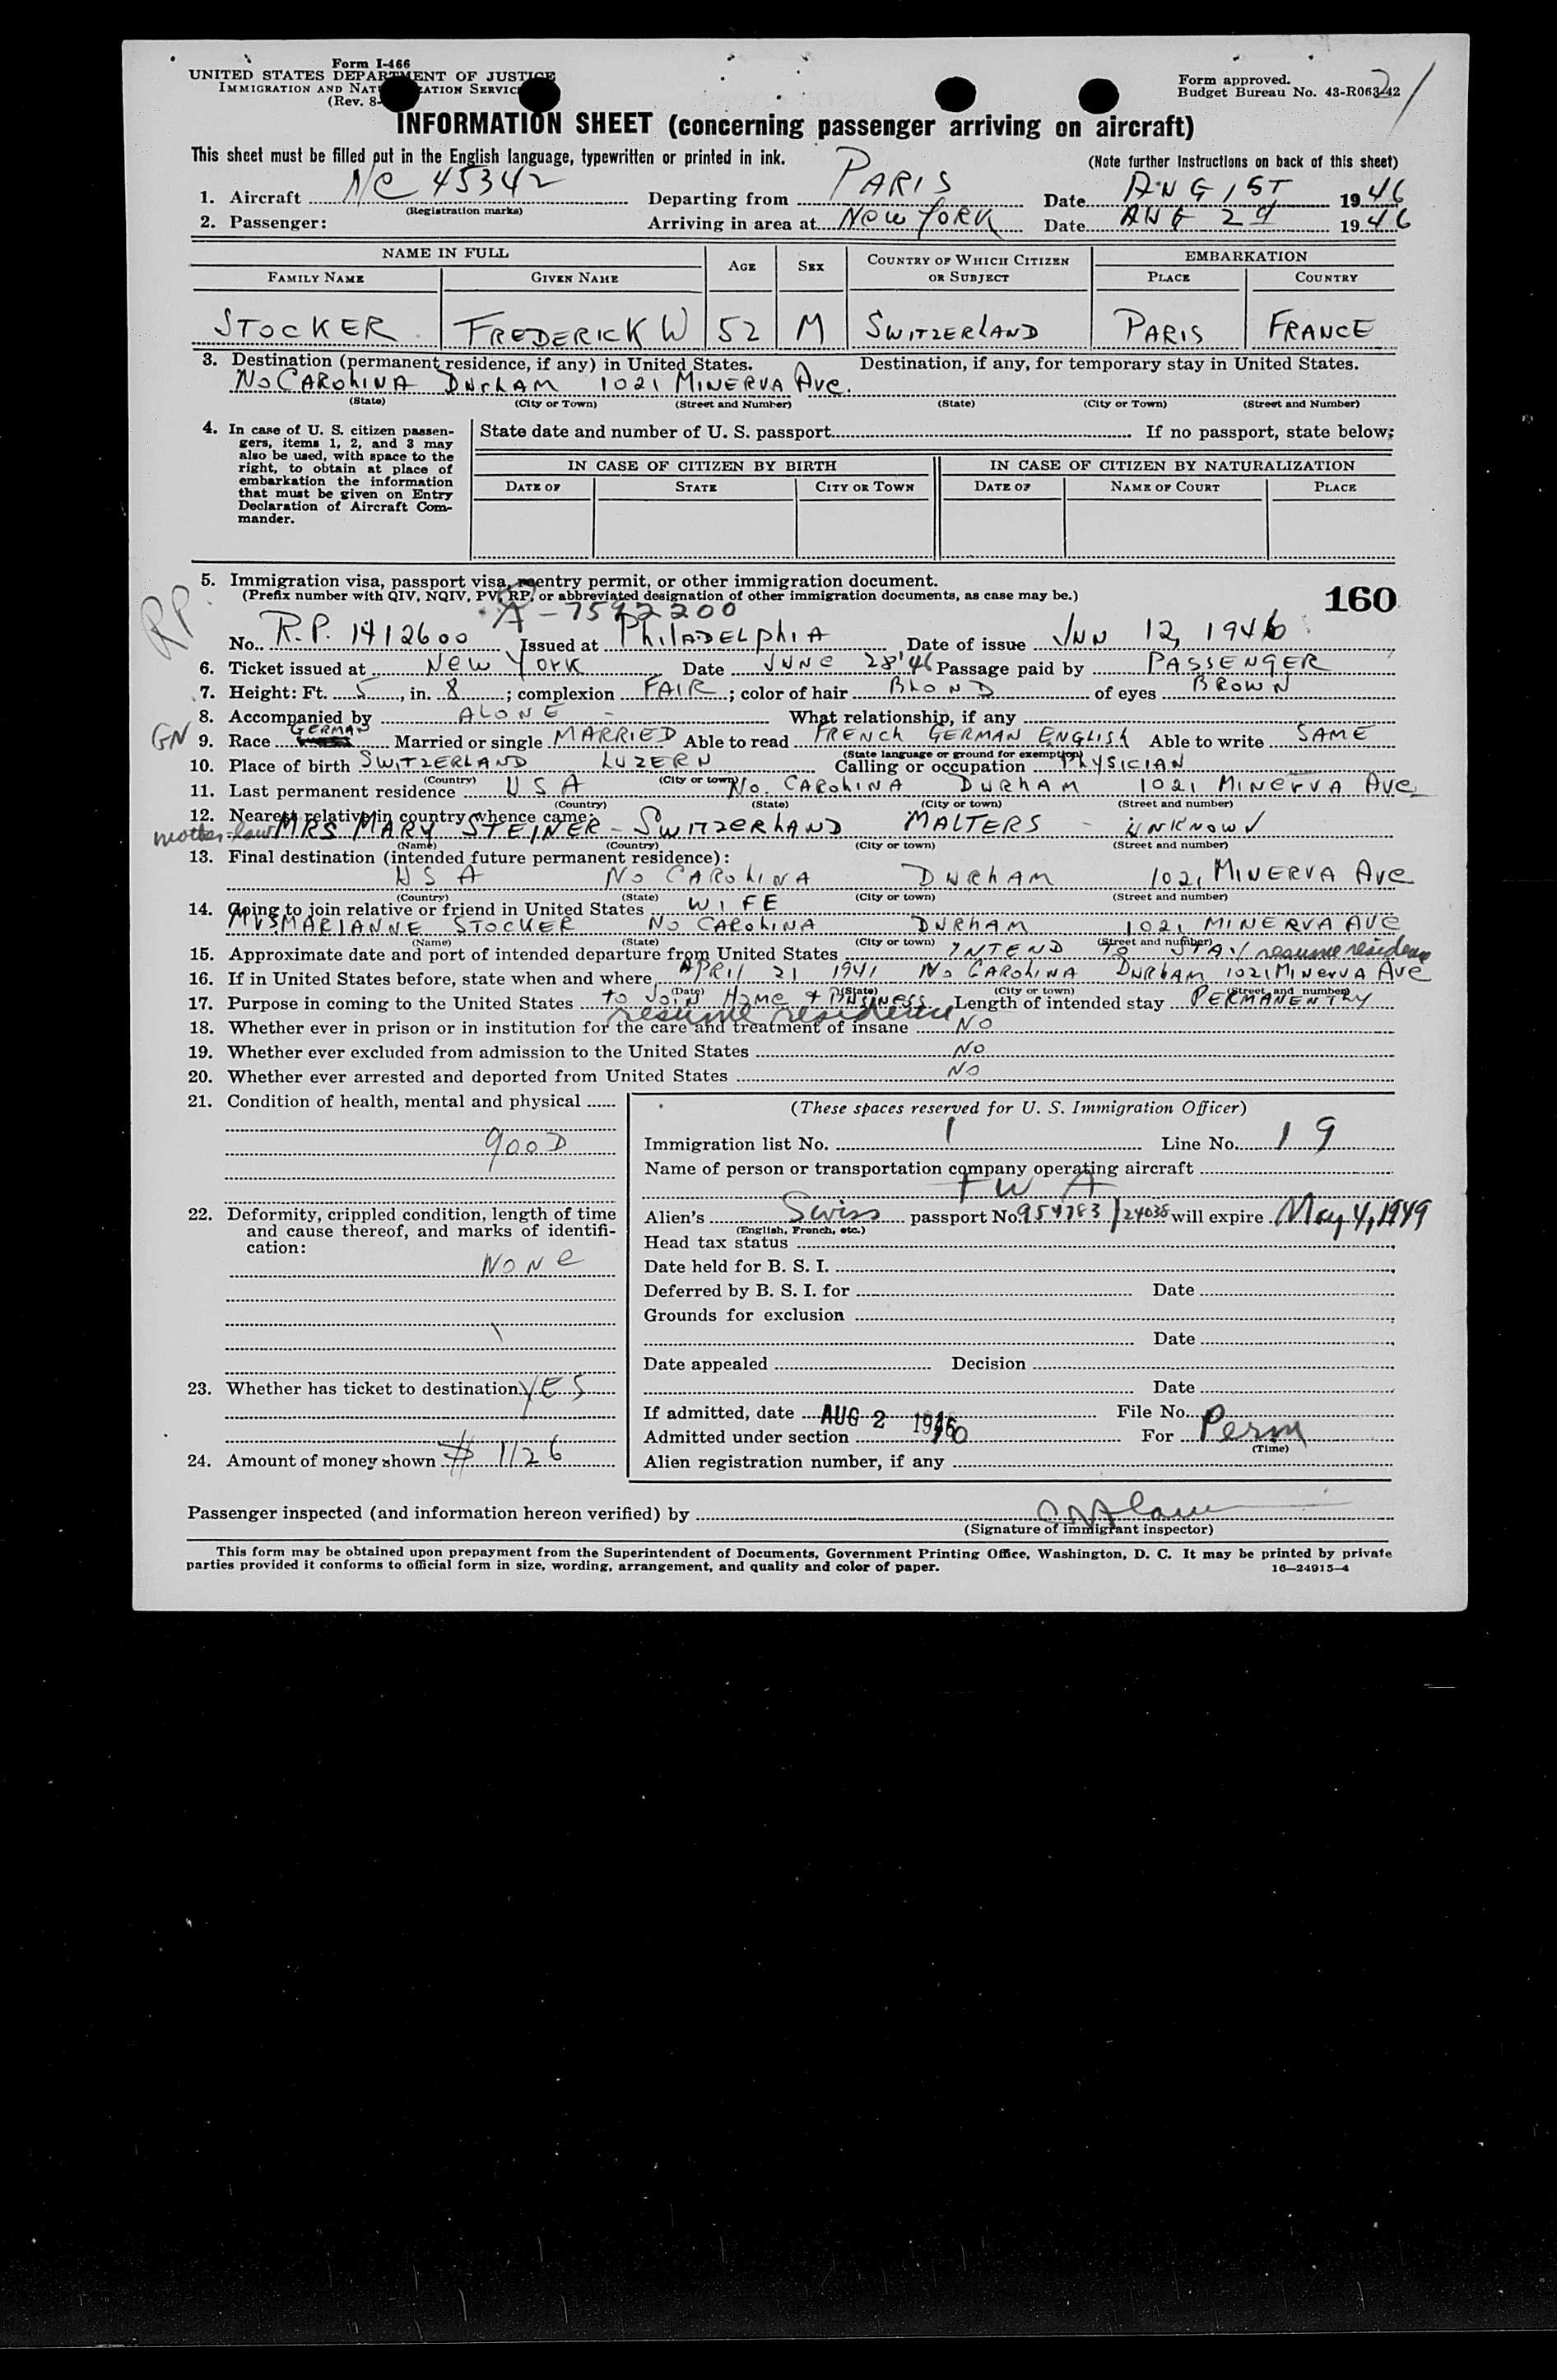 Form I-466
UNITED STATES DEPARTMENT OF JUSTICE
IMMIGRATION AND NATURALIZATION SERVICE
(Rev. 8-
Form approved.
Budget Bureau No. 43-R063-42
INFORMATION SHEET (concerning passenger arriving on aircraft)
This sheet must be filled out in the English language, typewritten or printed in ink. (Note further instructions on back of this sheet)
1. Aircraft NC 45342 Departing from PARIS Date AUG 1ST 1946
(Registration marks)
2. Passenger: Arriving in area at NEW YORK Date AUG 2d 1946
NAME IN FULL AGE SEX COUNTRY OF WHICH CITIZEN OR SUBJECT EMBARKATION
FAMILY NAME GIVEN NAME PLACE COUNTRY
STOCKER FREDERICK W 52 M SWITZERLAND PARIS FRANCE
3. Destination (permanent residence, if any) in United States. Destination, if any, for temporary stay in United States.
NO CAROLINA DURHAM 1021 MINERVA Ave.
(State) (City or Town) (Street and Number) (State) (City or Town) (Street and Number)
4. In case of U. S. citizen passen-
gers, items 1, 2, and 3 may
also be used, with space to the
right, to obtain at place of
embarkation the information
that must be given on Entry
Declaration of Aircraft Com-
mander.
State date and number of U. S. passport If no passport, state below:
IN CASE OF CITIZEN BY BIRTH IN CASE OF CITIZEN BY NATURALIZATION
DATE OF STATE CITY OR TOWN DATE OF NAME OF COURT PLACE
5. Immigration visa, passport visa, reentry permit, or other immigration document.
(Prefix number with QIV, NQIV, PV, RP, or abbreviated designation of other immigration documents, as case may be.) 160
RP
A-7592200
No. R.P. 1412600 Issued at PHILADELPHIA Date of issue JUN 12, 1946
6. Ticket issued at NEW YORK Date JUNE 28 '46 Passage paid by PASSENGER
7. Height: Ft. 5, in. 8; complexion FAIR; color of hair BLOND of eyes BROWN
8. Accompanied by ALONE - What relationship, if any
GN 9. Race GERMAN Married or single MARRIED Able to read FRENCH GERMAN ENGLISH Able to write SAME
(State language or ground for exemption)
10. Place of birth SWITZERLAND LUZERN Calling or occupation PHYSICIAN
(Country) (City or town)
11. Last permanent residence USA No. CAROLINA DURHAM 1021 MINERVA Ave
(Country) (State) (City or town) (Street and number)
12. Nearest relative in country whence came:
mother-law MRS MARY STEINER - SWITZERLAND MALTERS - UNKNOWN
(Name) (Country) (City or town) (Street and number)
13. Final destination (intended future permanent residence):
USA NO CAROLINA DURHAM 1021 MINERVA Ave
(Country) (State) (City or town) (Street and number)
14. Going to join relative or friend in United States WIFE
MRS MARIANNE STOCKER NO CAROLINA DURHAM 1021 MINERVA AVE
(Name) (State) (City or town) (Street and number)
15. Approximate date and port of intended departure from United States INTEND TO STAY resume residence
16. If in United States before, state when and where APRIL 21 1941 NO CAROLINA DURHAM 1021 MINERVA AVE
(Date) (State) (City or town) (Street and number)
17. Purpose in coming to the United States TO JOIN HOME & BUSINESS Length of intended stay PERMANENTLY
resume residence
18. Whether ever in prison or in institution for the care and treatment of insane NO
19. Whether ever excluded from admission to the United States NO
20. Whether ever arrested and deported from United States NO
21. Condition of health, mental and physical
GOOD
22. Deformity, crippled condition, length of time
and cause thereof, and marks of identifi-
cation:
NONE
23. Whether has ticket to destination YES
24. Amount of money shown $ 1126
(These spaces reserved for U. S. Immigration Officer)
Immigration list No. 1 Line No. 19
Name of person or transportation company operating aircraft
TWA
Alien's Swiss passport No. 954783/24038 will expire May 4, 1949
(English, French, etc.)
Head tax status
Date held for B. S. I.
Deferred by B. S. I. for Date
Grounds for exclusion
Date
Date appealed Decision
Date
If admitted, date AUG 2 1946 File No.
Admitted under section For Perm
(Time)
Alien registration number, if any
Passenger inspected (and information hereon verified) by
(Signature of immigrant inspector)
This form may be obtained upon prepayment from the Superintendent of Documents, Government Printing Office, Washington, D. C. It may be printed by private
parties provided it conforms to official form in size, wording, arrangement, and quality and color of paper. 16—24915-4